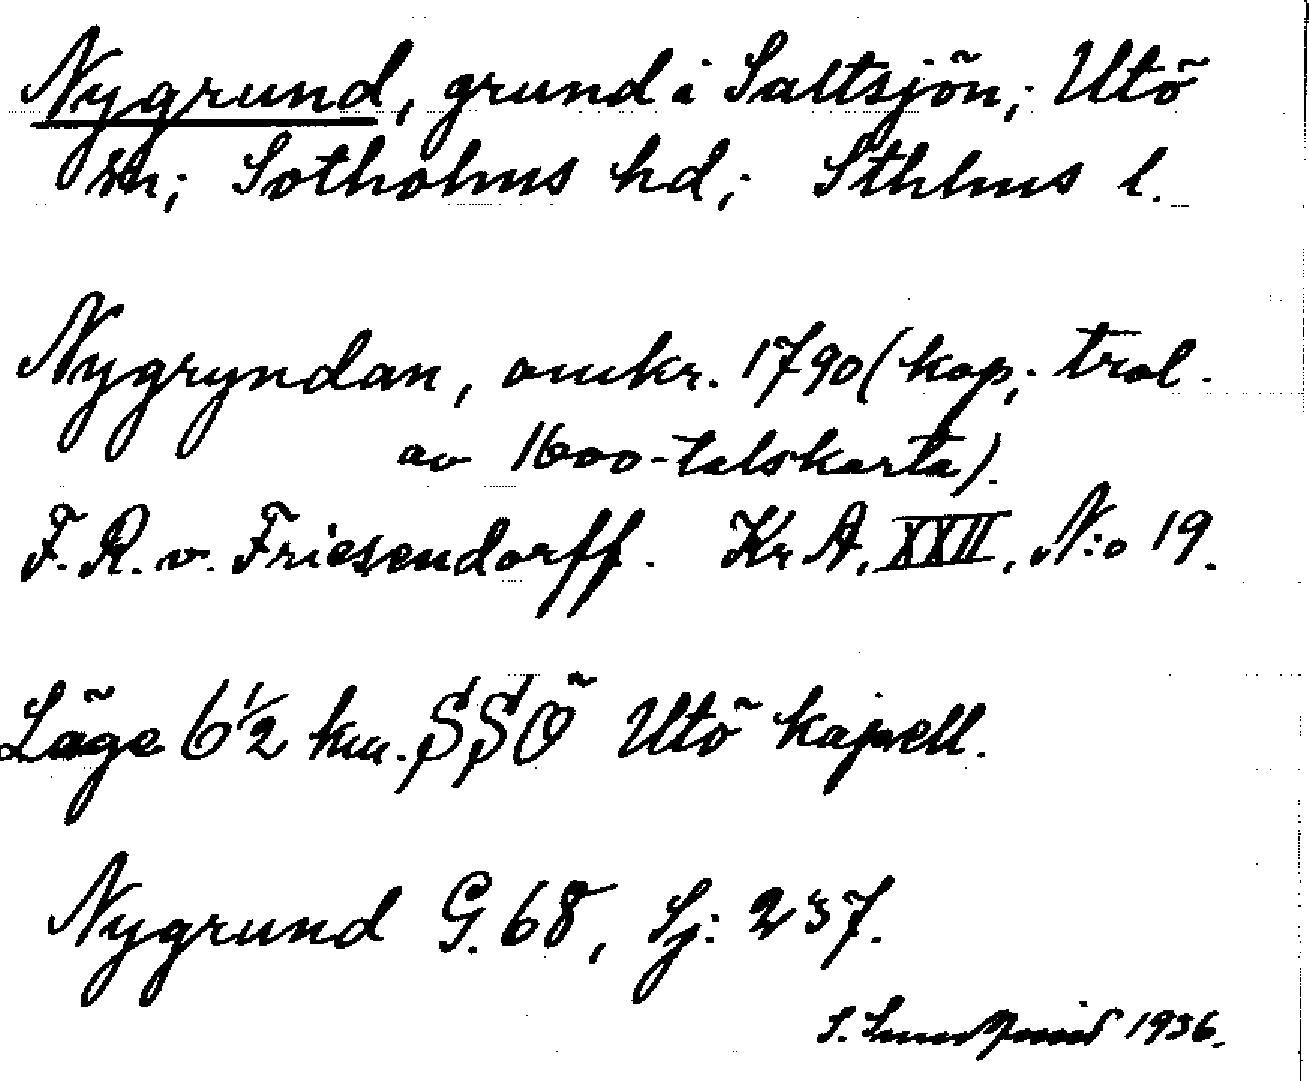 Nygrund, grund i Saltsjön; Utö
sn; Sotholms hd; Sthlms l.
Nygryndan, omkr. 1790 (kop; trol.
av 1600-talskarta).
F. R. v. Friesendorff. Kr A, XXII, N:o 19.
Läge 6 1/2 km. SSÖ Utö kapell.
Nygrund G. 68, Sj: 237.
S. 1936.